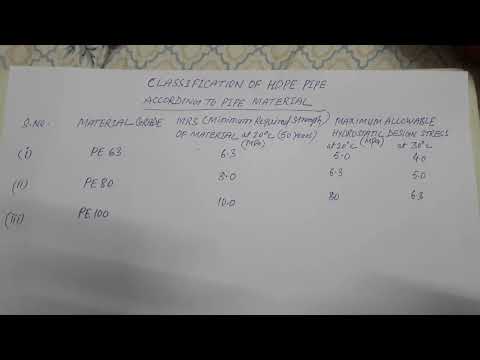 CLASSIFICATION OF HDPE PIPE
ACCORDING TO PIPE MATERIAL
S.NO. MATERIAL GRADE MRS (Minimum Required Strength) MAXIMUM ALLOWABLE
OF MATERIAL at 20°C (50 years) HYDROSTATIC DESIGN STRESS
(MPa) at 20°C (MPa) at 30°C
(i) PE 63 6.3 5.0 4.0
(ii) PE 80 8.0 6.3 5.0
(iii) PE 100 10.0 80 6.3